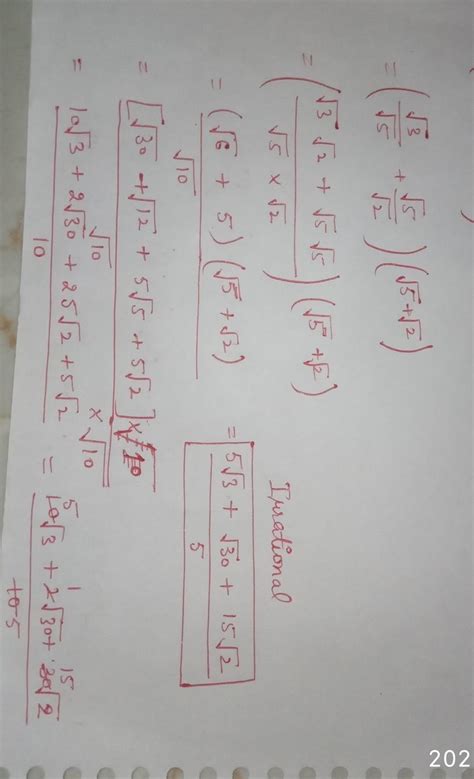 = (√3/√5 + √5/√2) (√5+√2)
= (√3 √2 + √5 √5 / √5 × √2) (√5 + √2)
= (√6 + 5) (√5 + √2) / √10
= [√30 + √12 + 5√5 + 5√2] × √10 / √10 × √10
= 10√3 + 2√30 + 25√2 + 5√2 / 10 = 10√3 + 2√30 + 30√2 / 10
5 1 15
5
= 5√3 + √30 + 15√2 / 5
Irrational
202